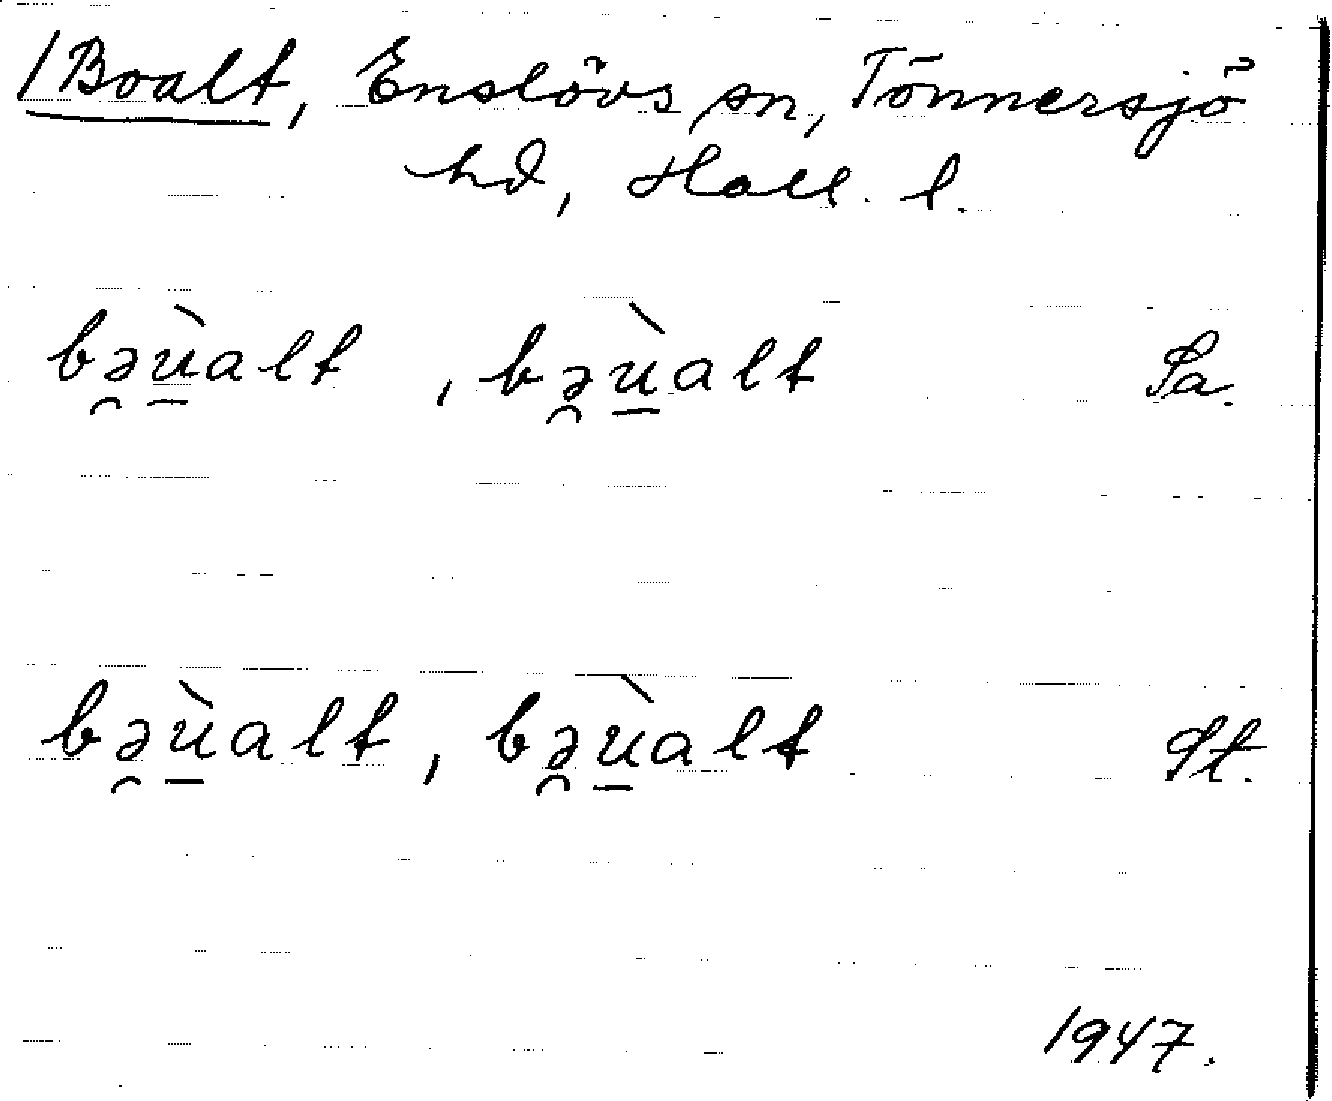 /Boalt, Enslövs sn, Tönnersjö
hd, Hall. l.
bə̯ù̲alt , bə̯ù̲alt Sa.
bə̯ù̲alt , bə̯ù̲alt St.
1947.